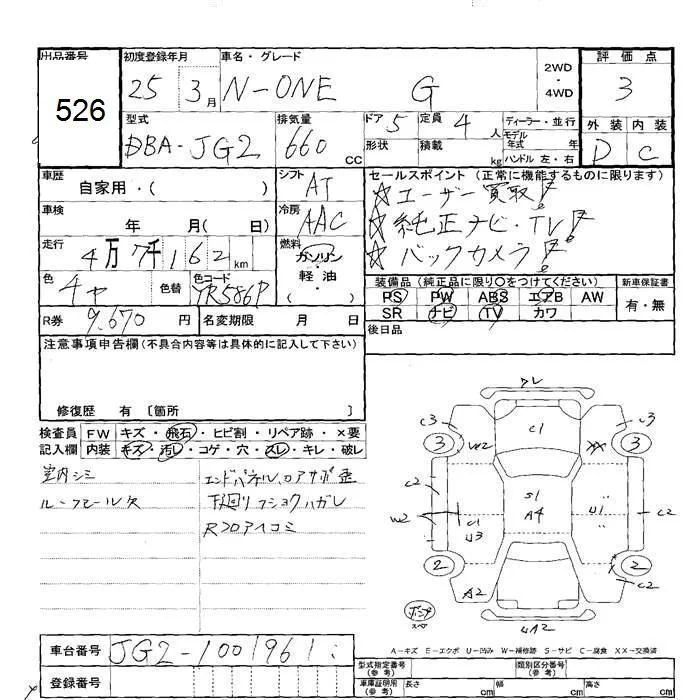 出品番号
526
初度登録年月
25 3月
車名・グレード
N-ONE G
2WD
・
4WD
評価点
3
外装 内装
D C
型式
DBA-JG2
排気量
660 cc
ドア 5
定員 4 人
形状
積載 kg
ディーラー・並行
モデル年式 年式
ハンドル 左・右
車歴
自家用・( )
シフト
AT
セールスポイント (正常に機能するものに限ります)
☆ユーザー買取
☆純正ナビ・TV
☆バックカメラ
車検
年 月( 日)
冷房
AAC
走行
4万7千162km
燃料
ガソリン
・
軽油
( )
色
チャ
色替
色コード
YR586P
装備品 (純正品に限り○をつけてください)
PS PW ABS エアB AW
SR ナビ TV カワ
新車保証書
有・無
R券 9,670 円
名変期限 月 日
後日品
注意事項申告欄(不具合内容等は具体的に記入して下さい)
修復歴 有 〔箇所 〕
検査員記入欄
FW キズ・飛石・ヒビ割・リペア跡・×要
内装 キズ・汚レ・コゲ・穴・スレ・キレ・破レ
室内シミ
下回りフショクハガレ
Rフロアヘコミ
C3
C1
C3
3
W2
XX
3
C2
S1
A4
U1
C2
W2
C1
U3
2
2
C2
A2
UA2
A-キズ E-エクボ U-凹み W-補修跡 S-サビ C-腐食 XX-交換済
車台番号
JG2-1001961
登録番号
型式指定番号
(参考)
類別区分番号
(参考)
車庫証明用
(参考)
長さ cm
幅 cm
高さ cm